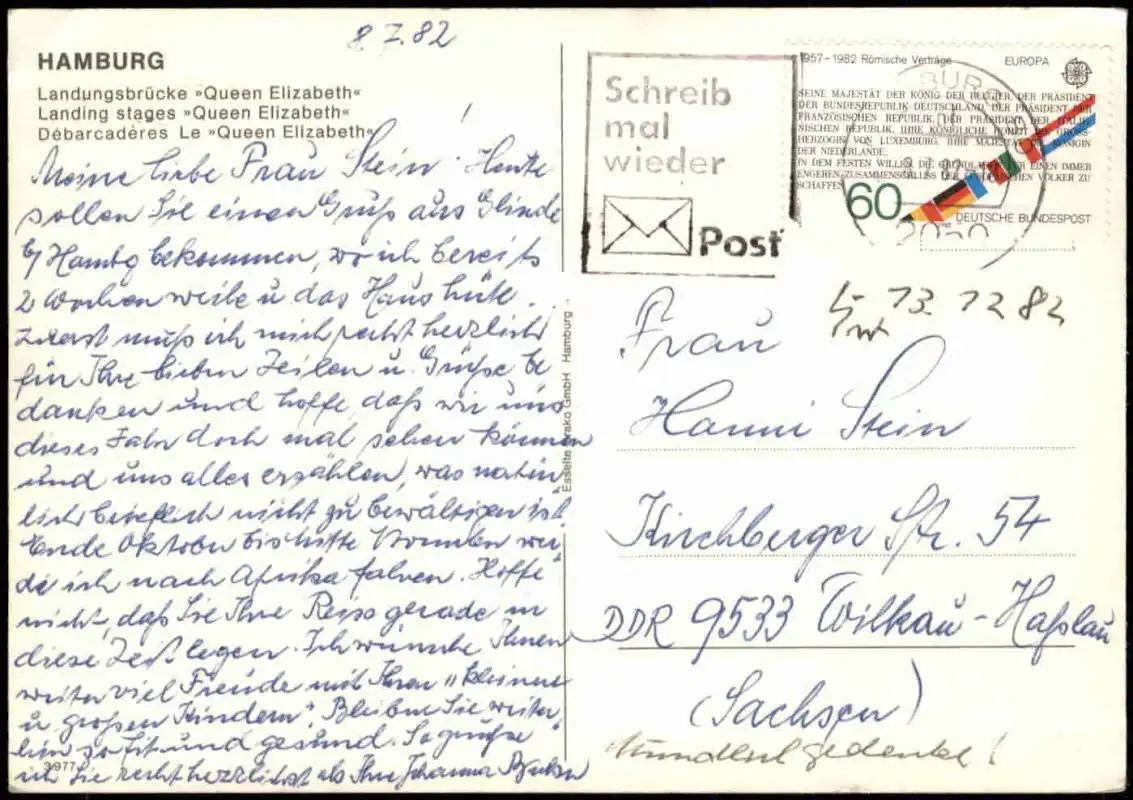 8.7.82
HAMBURG
Landungsbrücke »Queen Elizabeth«
Landing stages »Queen Elizabeth«
Débarcadères Le »Queen Elizabeth«
Meine liebe Frau Stein! Heute
sollen Sie einen Gruß aus Glinde
b/ Hambg bekommen, wo ich bereits
2 Wochen weile u das Haus hüte.
Zuerst muß ich mich recht herzlich
für Ihre lieben Zeilen u. Grüße be
danken und hoffe, daß wir uns
dieses Jahr doch mal sehen können
und uns alles erzählen, was natür
lich brieflich nicht zu bewältigen ist.
Ende Oktober bis Mitte Novemb. wer
de ich nach Afrika fahren. Hoffe
nicht, daß Sie Ihre Reise gerade in
diese Zeit legen. Ich wünsche Ihnen
weiter viel Freude mit Ihren „kleinen
u. großen Kindern". Bleiben Sie weiter
hin so fit und gesund. So grüße
ich Sie recht herzlichst als Ihre Johanna
3977
Esselte GmbH Hamburg
Schreib
mal
wieder
Post
1957-1982 Römische Verträge EUROPA
SEINE MAJESTÄT DER KÖNIG DER BELGIER, DER PRÄSIDENT
DER BUNDESREPUBLIK DEUTSCHLAND, DER PRÄSIDENT DER
FRANZÖSISCHEN REPUBLIK, DER PRÄSIDENT DER ITALIE-
NISCHEN REPUBLIK, IHRE KÖNIGLICHE HOHEIT DIE GROSS-
HERZOGIN VON LUXEMBURG, IHRE MAJESTÄT DIE KÖNIGIN
DER NIEDERLANDE,
IN DEM FESTEN WILLEN, DIE GRUNDLAGEN FÜR EINEN IMMER
ENGEREN ZUSAMMENSCHLUSS DER EUROPÄISCHEN VÖLKER ZU
SCHAFFEN
60
DEUTSCHE BUNDESPOST
BURG
2050
13. 12 82
Frau
Hanni Stein
Kirchberger Str. 54
DDR 9533 Wilkau-Haßlau
(Sachsen)
mündlich gedenke!